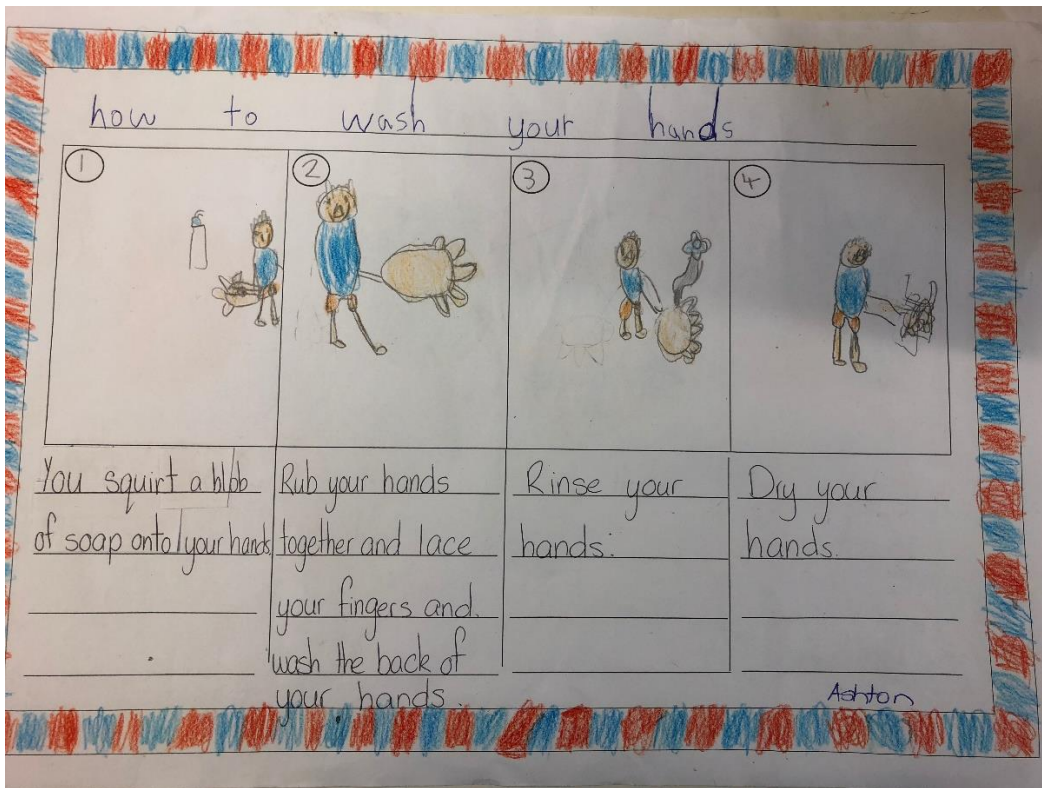 how to wash your hands
1
2
3
4
You squirt a blob
of soap onto your hands
Rub your hands
together and lace
your fingers and.
wash the back of
your hands.
Rinse your
hands.
Dry your
hands.
Ashton